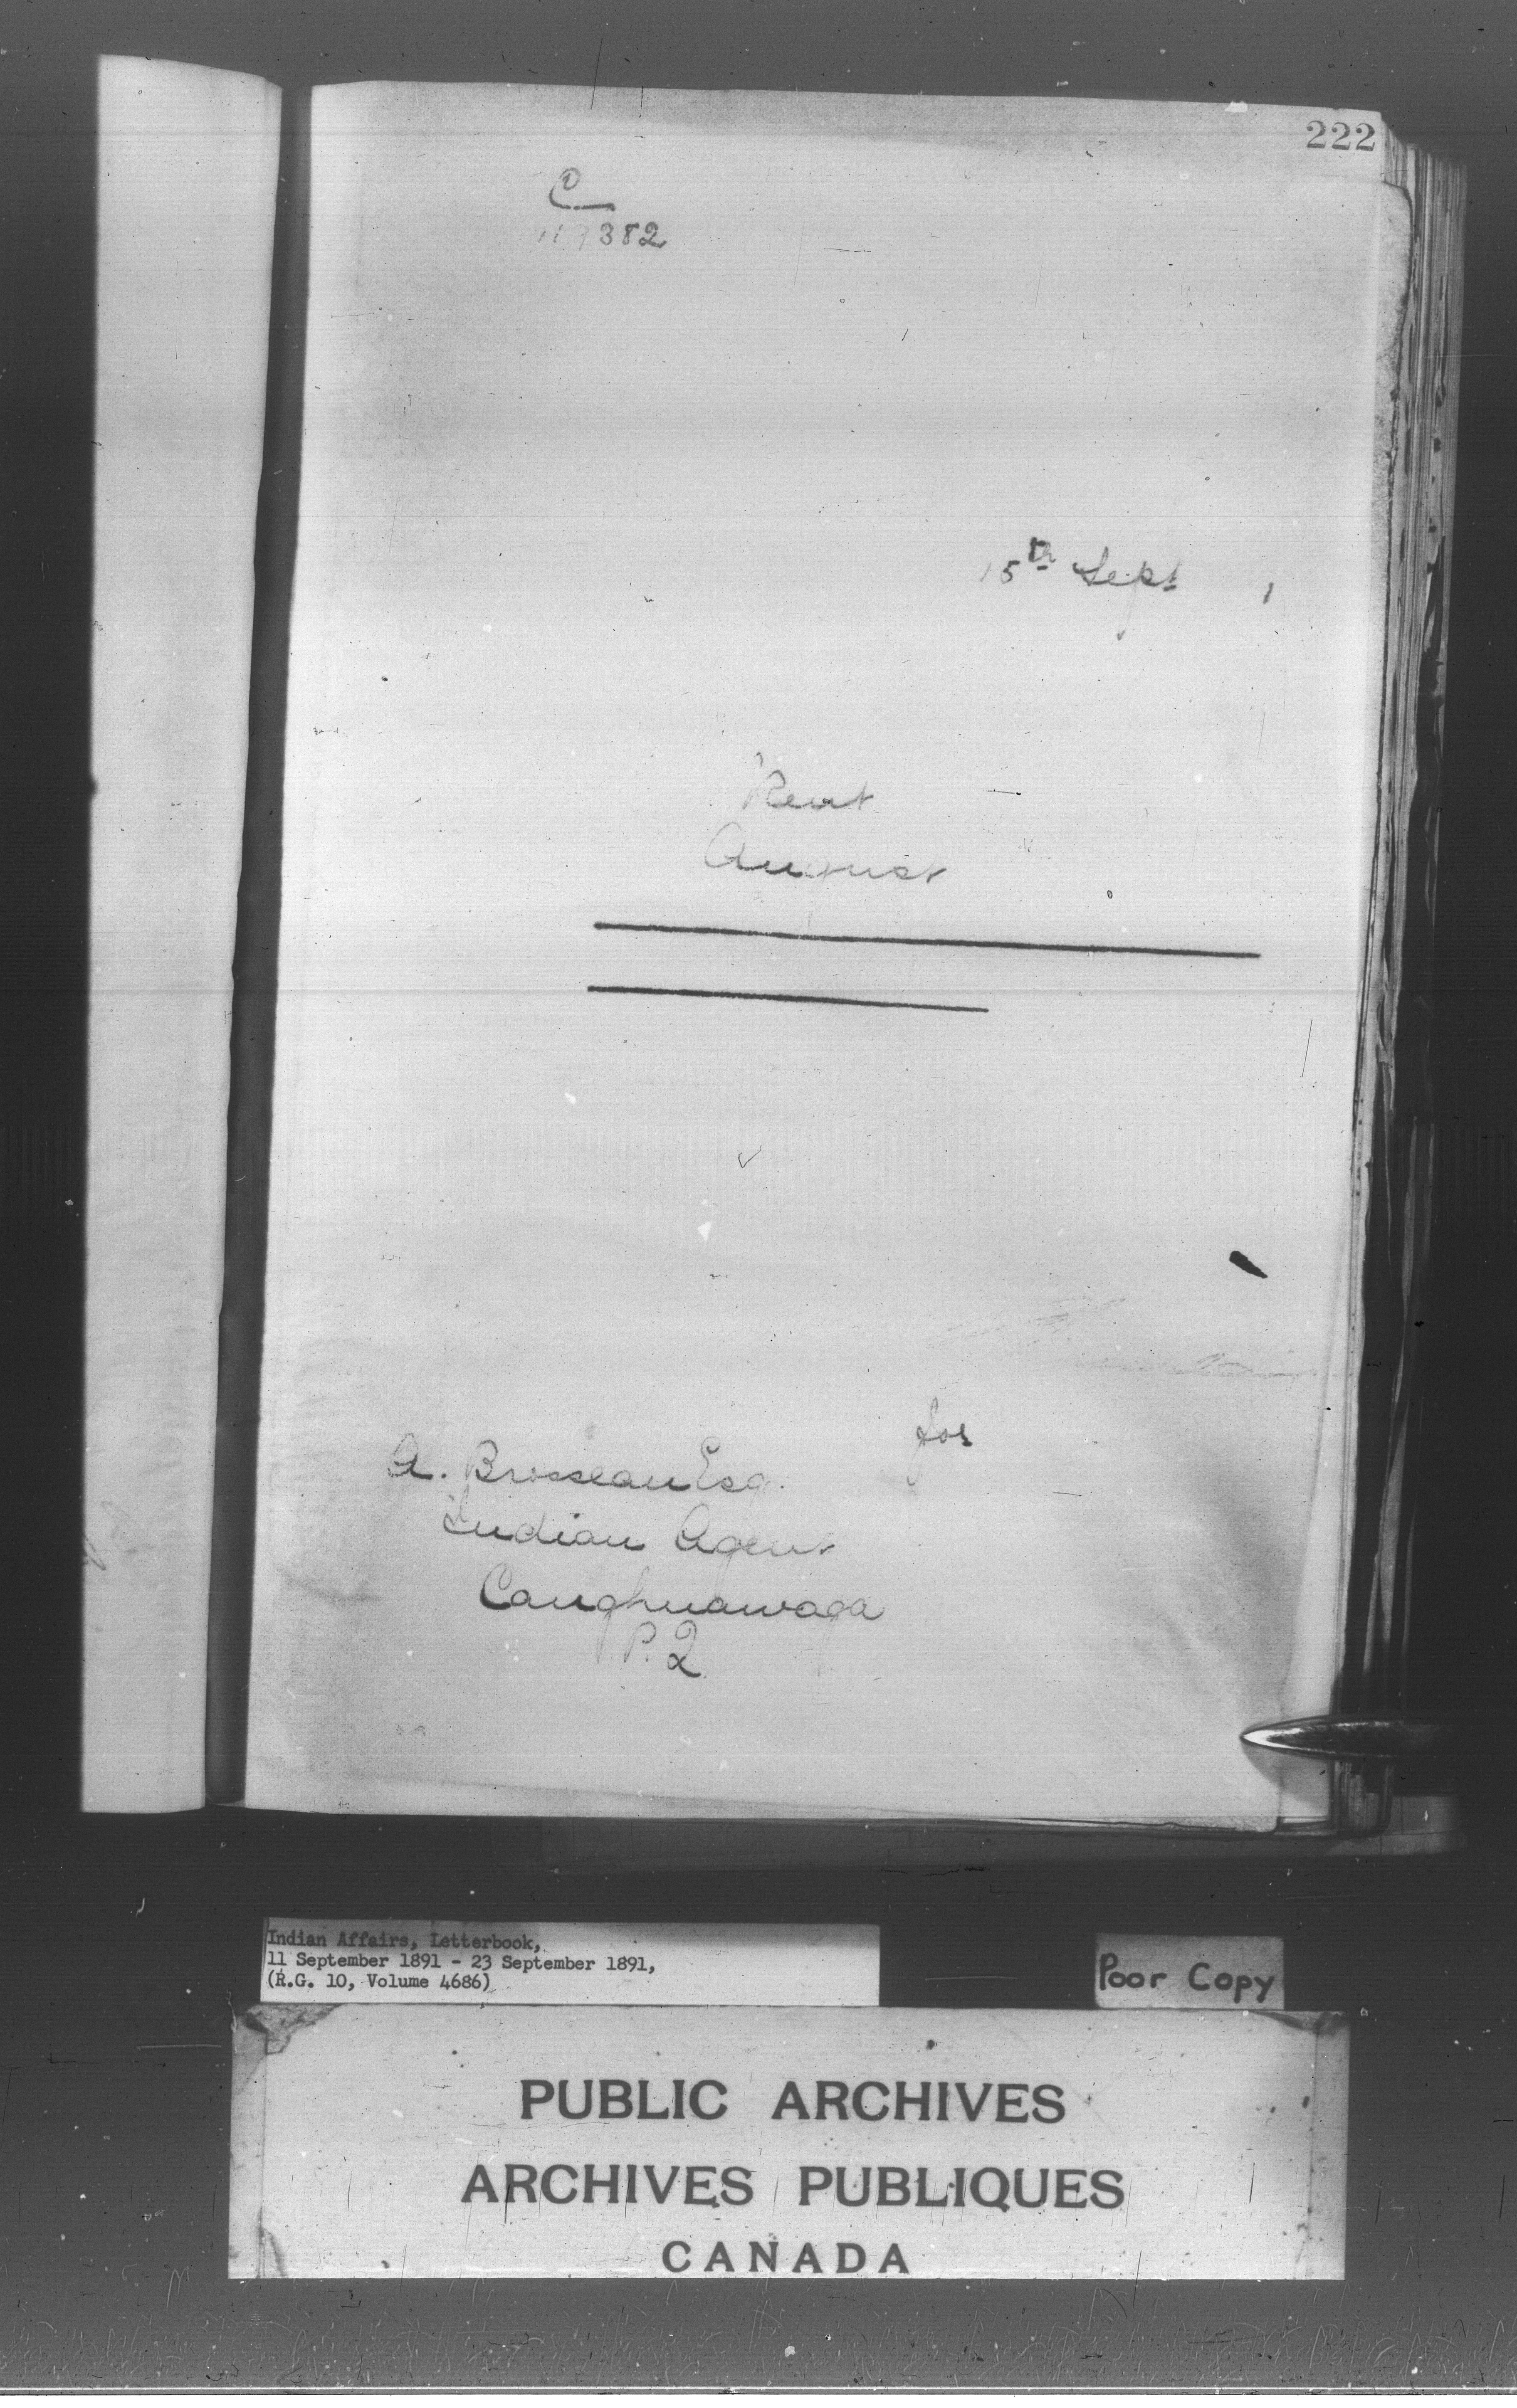 222
C
119382
15th Sept 1
Rent
August
for
A. Brosseau Esq.
Indian Agent
Caughnawaga
P.Q
Indian Affairs, Letterbook,
11 September 1891 - 23 September 1891,
(R.G. 10, Volume 4686)
Poor Copy
PUBLIC ARCHIVES
ARCHIVES PUBLIQUES
CANADA